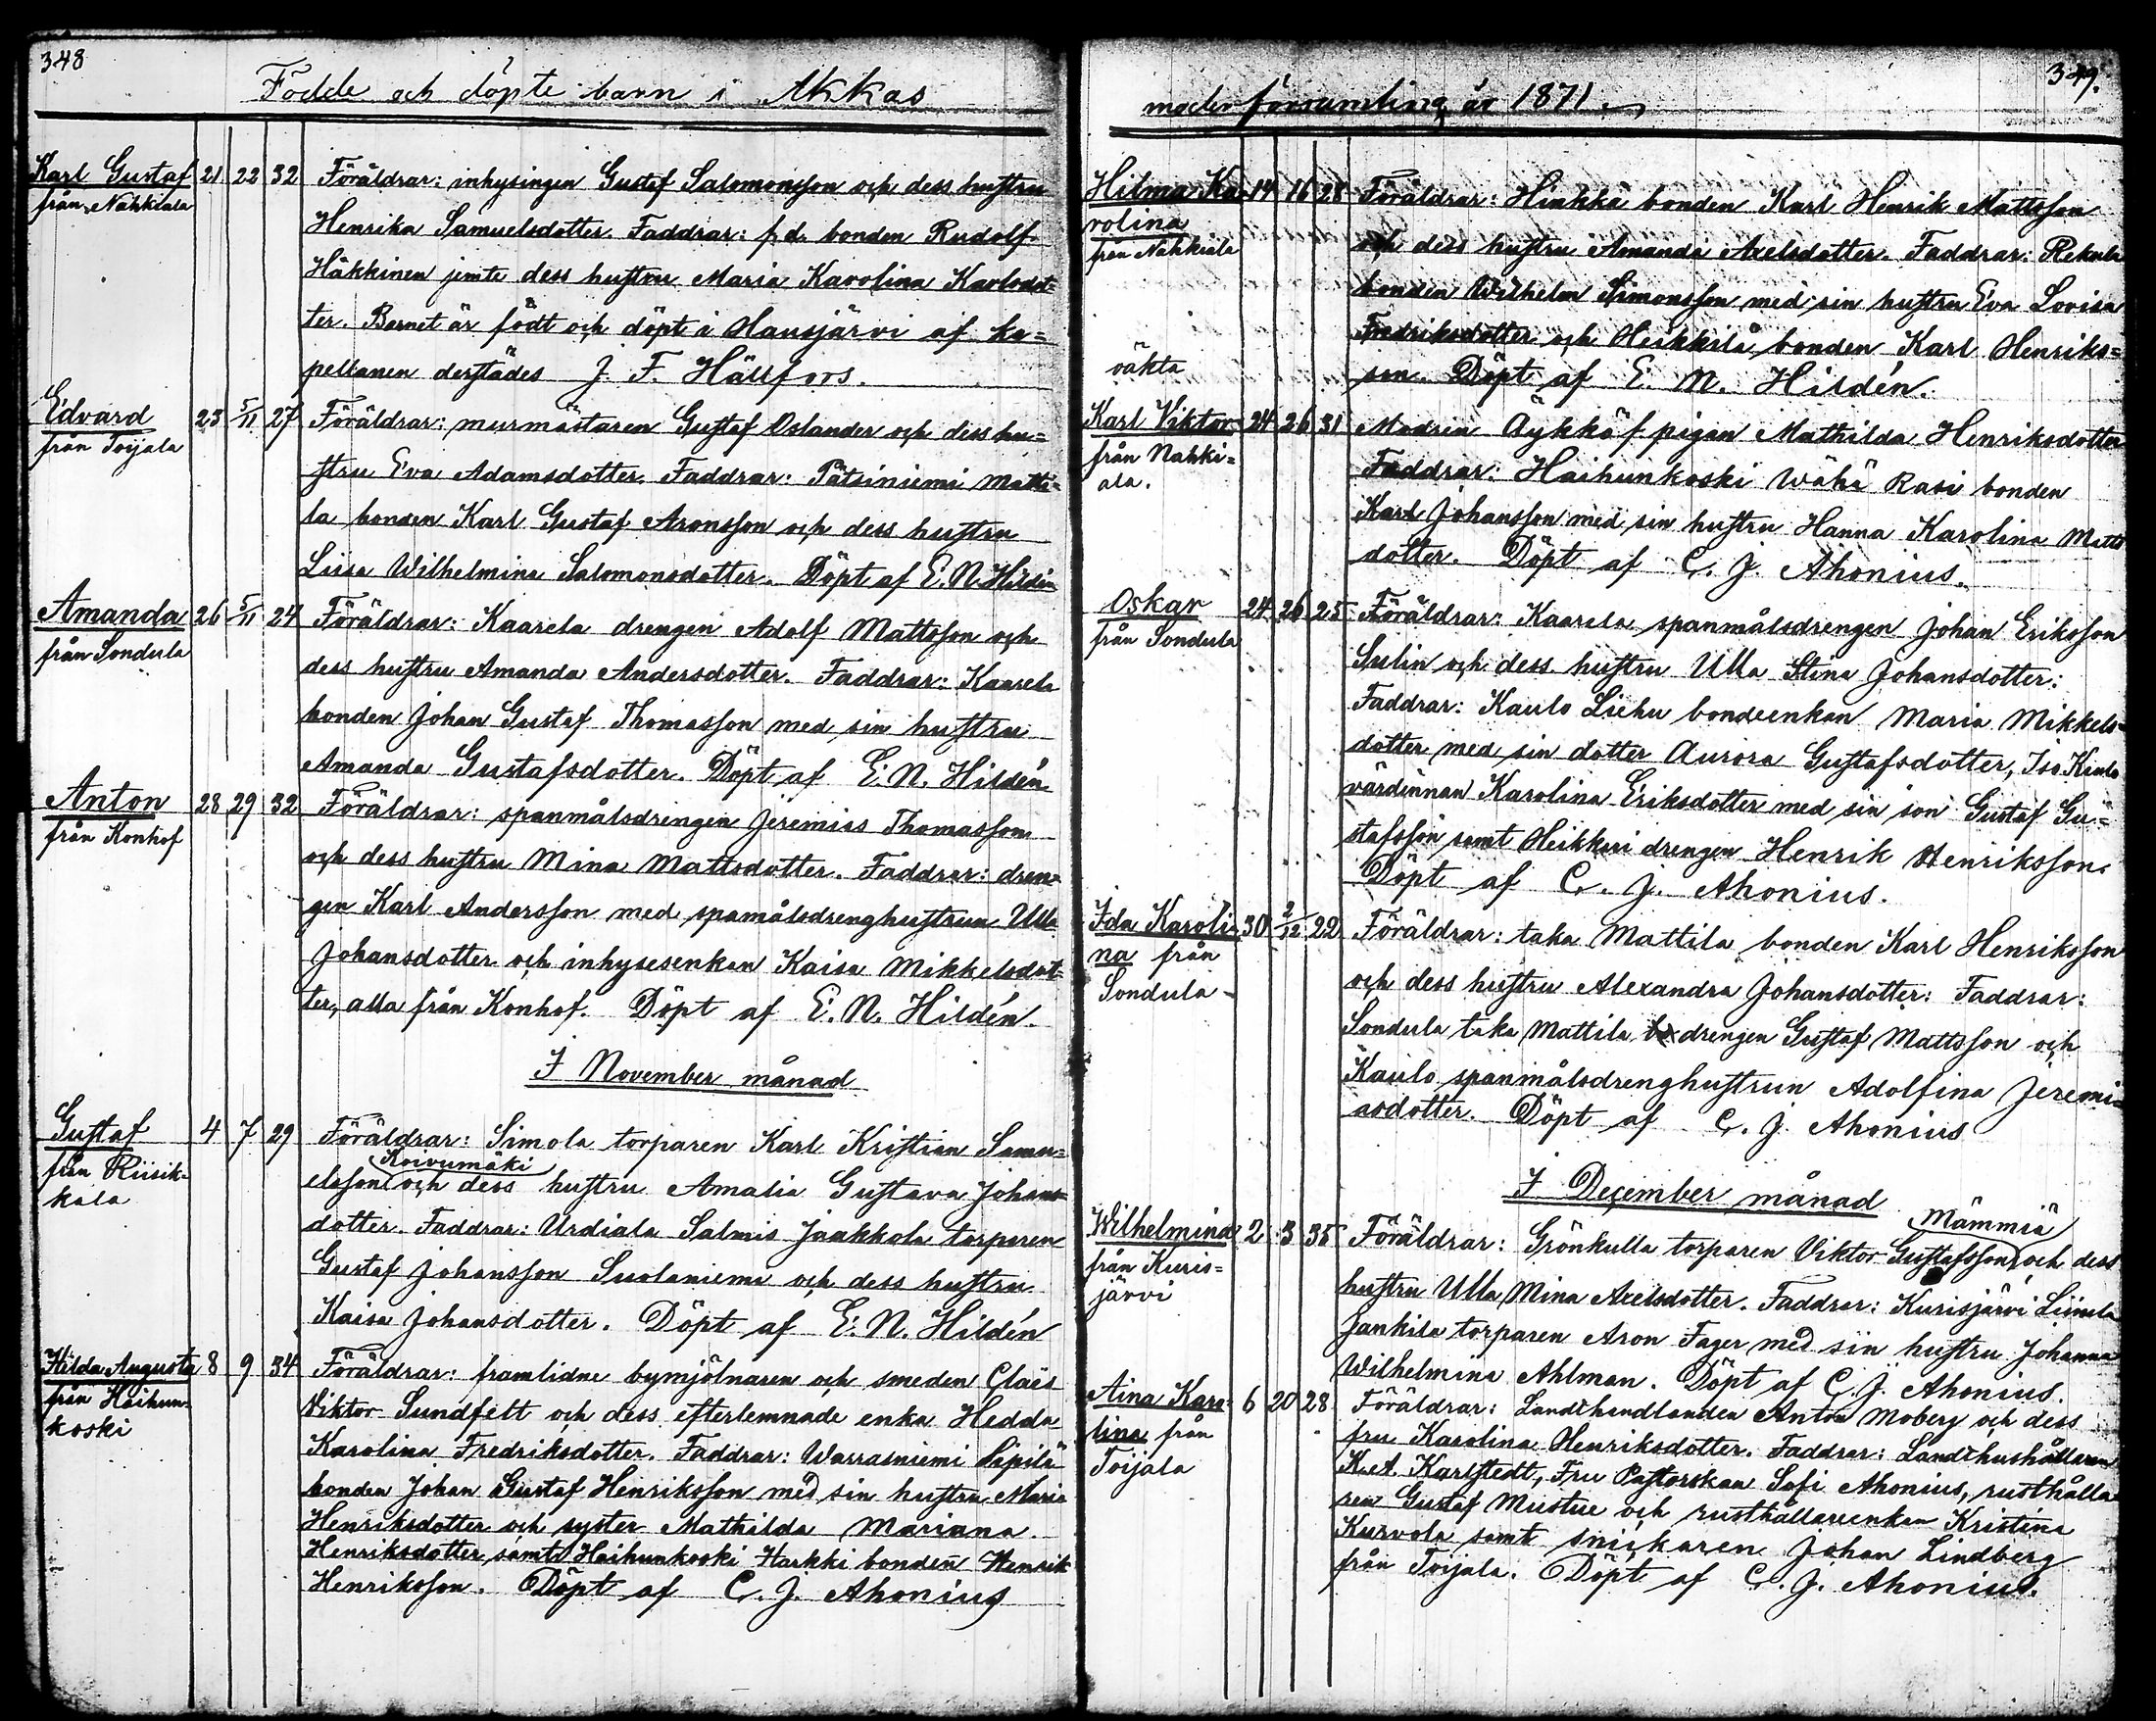 348
Födde och döpte barn i Akkas
Karl Gustaf 21 22 32 Föräldrar: inhysingen Gustaf Salomonsson och dess hustru
från Nahkiala
Henrika Samuelsdotter. Faddrar: f. d. bonden Rudolf
Häkkinen jemte dess hustru Maria Karolina Karlsdot=
ter. Barnet är född och döpt i Hausjärvi af ka=
pellanen derstädes J. F. Hällfors.
Edvard 23 5/11 27 Föräldrar: murmästaren Gustaf Oslander och dess hu=
från Toijala
stru Eva Adamsdotter. Faddrar: Pätsiniemi Matti=
la bonden Karl Gustaf Aronsson och dess hustru
Liisa Wilhelmina Salomonsdotter. Döpt af E. N. Hildén
Amanda 26 5/11 24 Föräldrar: Kaarela drengen Adolf Mattsson och
från Sondula
dess hustru Amanda Andersdotter. Faddrar: Kaarela
bonden Johan Gustaf Thomasson med sin hustru
Amanda Gustafsdotter. Döpt af E. N. Hildén
Anton 28 29 32 Föräldrar: spanmålsdrengen Jeremias Thomasson
från Konhof
och dess hustru Mina Mattsdotter. Faddrar: dren=
gen Karl Andersson med spamålsdrenghustrun Ulla
Johansdotter och inhysesenkan Kaisa Mikkelsdot=
ter, alla från Konhof. Döpt af E. N. Hildén.
I November månad
Gustaf 4 7 29 Föräldrar: Simola torparen Karl Kristian Samu=
från Riisik=
kala
Koivumäki
elsson och dess hustru Amalia Gustava Johans=
dotter. Faddrar: Urdiala Salmis Jaakkola torparen
Gustaf Johansson Suolaniemi och dess hustru
Kaisa Johansdotter. Döpt af E. N. Hildén
Hilda Augusta 8 9 34 Föräldrar: framlidne bymjölnaren och smeden Claës
från Haihun=
koski
Viktor Sundfelt och dess efterlemnade enka Hedda
Karolina Fredriksdotter. Faddrar: Warrasniemi Sipilä
bonden Johan Gustaf Henriksson med sin hustru Maria
Henriksdotter och syster Mathilda Mariana
Henriksdotter, samt Haihunkoski Harkki bonden Henrik
Henriksson. Döpt af C. J. Ahonius
349.
moderförsamling år 1871.
Hilma Ka= 14 16 28 Föräldrar: Hinkkä bonden Karl Henrik Mattsson
rolina
från Nahkiala
och dess hustru Amanda Axelsdotter. Faddrar: Rekola
bonden Wilhelm Simonsson med sin hustru Eva Lovisa
Fredriksdotter och Heikkilä bonden Karl Henriks=
son. Döpt af E. N. Hildén.
oäkta
Karl Viktor 24 26 31 Modren Äykkä f pigan Mathilda Henriksdotter
från Nahki=
ala.
Faddrar: Haihunkoski Wähä Rasi bonden
Karl Johansson med sin hustru Hanna Karolina Matts
dotter. Döpt af C. J. Ahonius.
Oskar 24 26 25 Föräldrar: Kaarela spanmålsdrengen Johan Eriksson
från Sondula
Sulin och dess hustru Ulla Stina Johansdotter:
Faddrar: Kaulo Liehu bondeenkan Maria Mikkels=
dotter med sin dotter Aurora Gustafsdotter, Iso Kaulo
värdinnan Karolina Eriksdotter med sin son Gustaf Gu=
stafsson samt Heikkeri drengen Henrik Henriksson.
Döpt af C. J. Ahonius.
Ida Karoli= 30 2/12 22 Föräldrar: taka Mattila bonden Karl Henriksson
na från
Sondula
och dess hustru Alexandra Johansdotter: Faddrar:
Sondula taka Mattila drengen Gustaf Mattsson och
Kaulo spanmålsdrenghustrun Adolfina Jeremi=
asdotter. Döpt af C. J. Ahonius
I December månad
Mämmiä
Wilhelmina 2 3 35 Föräldrar: Grönkulla torparen Viktor Gustafsson och dess
från Kuris=
järvi
hustru Ulla Mina Axelsdotter. Faddrar: Kurisjärvi Liinola
Jankila torparen Aron Fager med sin hustru Johanna
Wilhelmina Ahlman. Döpt af C. J. Ahonius.
Aina Karo= 6 20 28 Föräldrar: Landthandlanden Anton Moberg och dess
lina från
Toijala
fru Karolina Henriksdotter. Faddrar: Landthushållaren
K. A. Karlstedt, Fru Pastorskan Sofi Ahonius, rusthålla
ren Gustaf Mustue och rusthållareenkan Kristina
Kurvola samt snickaren Johan Lindberg
från Toijala. Döpt af C. J. Ahonius.